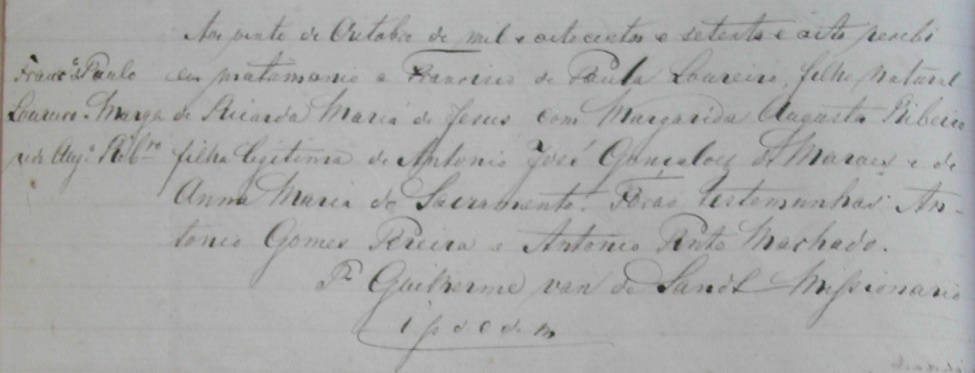 Aos vinte de Outubro de mil e oitocentos e setenta e oito recebi
Franc.º Paulo em matrimonio a Francisco de Paula Loureiro, filho natural
Loureiro. Marga de Ricarda Maria de Jesus com Margarida Augusta Ribeiro
rida Aug.ª Rib.ro filha legitima de Antonio José Gonçalves de Moraes e de
Anna Maria do Sacramento. Forão testemunhas An-
tonio Gomes Pereira e Antonio Pinto Machado.
Pe Guilherme van de Sandt Missionario